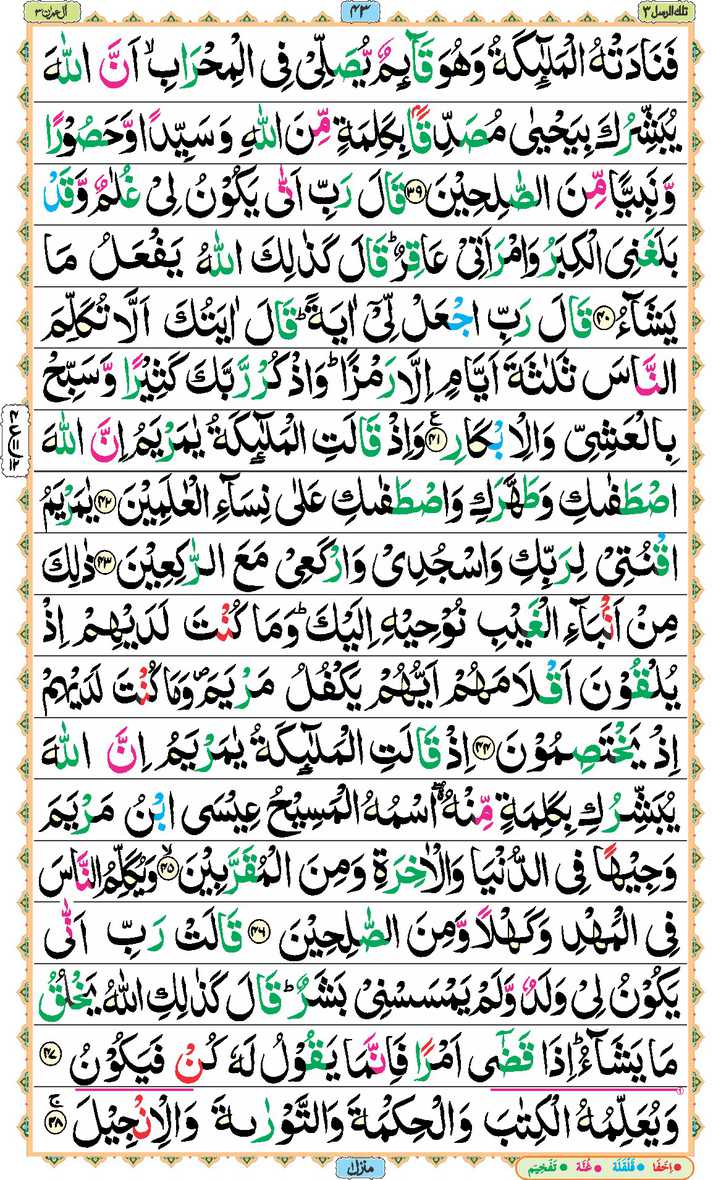 تلك الرسل ٣
٤٣
اٰل عمرٰن ٣
فَنَادَتْهُ الْمَلٰٓئِكَةُ وَهُوَ قَآئِمٌ يُّصَلِّىْ فِى الْمِحْرَابِۙ اَنَّ اللّٰهَ
يُبَشِّرُكَ بِيَحْيٰى مُصَدِّقًۢا بِكَلِمَةٍ مِّنَ اللّٰهِ وَسَيِّدًا وَّحَصُوْرًا
وَّنَبِيًّا مِّنَ الصّٰلِحِيْنَ ﴿۳۹﴾ قَالَ رَبِّ اَنّٰى يَكُوْنُ لِىْ غُلٰمٌ وَّقَدْ
بَلَغَنِىَ الْكِبَرُ وَامْرَاَتِىْ عَاقِرٌؕ قَالَ كَذٰلِكَ اللّٰهُ يَفْعَلُ مَا
يَشَآءُ ﴿۴۰﴾ قَالَ رَبِّ اجْعَلْ لِّىْۤ اٰيَةًؕ قَالَ اٰيَتُكَ اَلَّا تُكَلِّمَ
النَّاسَ ثَلٰثَةَ اَيَّامٍ اِلَّا رَمْزًاؕ وَاذْكُرْ رَّبَّكَ كَثِيْرًا وَّسَبِّحْ
بِالْعَشِىِّ وَالْاِبْكَارِ ﴿۴۱﴾ ع وَاِذْ قَالَتِ الْمَلٰٓئِكَةُ يٰمَرْيَمُ اِنَّ اللّٰهَ
اصْطَفٰٮكِ وَطَهَّرَكِ وَاصْطَفٰٮكِ عَلٰى نِسَآءِ الْعٰلَمِيْنَ ﴿۴۲﴾ يٰمَرْيَمُ
اقْنُتِىْ لِرَبِّكِ وَاسْجُدِىْ وَارْكَعِىْ مَعَ الرّٰكِعِيْنَ ﴿۴۳﴾ ذٰلِكَ
مِنْ اَنْۢبَآءِ الْغَيْبِ نُوْحِيْهِ اِلَيْكَؕ وَمَا كُنْتَ لَدَيْهِمْ اِذْ
يُلْقُوْنَ اَقْلَامَهُمْ اَيُّهُمْ يَكْفُلُ مَرْيَمَ۪ وَمَا كُنْتَ لَدَيْهِمْ
اِذْ يَخْتَصِمُوْنَ ﴿۴۴﴾ اِذْ قَالَتِ الْمَلٰٓئِكَةُ يٰمَرْيَمُ اِنَّ اللّٰهَ
يُبَشِّرُكِ بِكَلِمَةٍ مِّنْهُۖ اسْمُهُ الْمَسِيْحُ عِيْسَى ابْنُ مَرْيَمَ
وَجِيْهًا فِى الدُّنْيَا وَالْاٰخِرَةِ وَمِنَ الْمُقَرَّبِيْنَۙ ﴿۴۵﴾ وَيُكَلِّمُ النَّاسَ
فِى الْمَهْدِ وَكَهْلًا وَّمِنَ الصّٰلِحِيْنَ ﴿۴۶﴾ قَالَتْ رَبِّ اَنّٰى
يَكُوْنُ لِىْ وَلَدٌ وَّلَمْ يَمْسَسْنِىْ بَشَرٌؕ قَالَ كَذٰلِكِ اللّٰهُ يَخْلُقُ
مَا يَشَآءُؕ اِذَا قَضٰٓى اَمْرًا فَاِنَّمَا يَقُوْلُ لَهٗ كُنْ فَيَكُوْنُ ﴿۴۷﴾
وَيُعَلِّمُهُ الْكِتٰبَ وَالْحِكْمَةَ وَالتَّوْرٰٮةَ وَالْاِنْجِيْلَۚ ﴿۴۸﴾
منزل ١
اِخفَا قَلقَلَة غُنَّة تَفخِيم